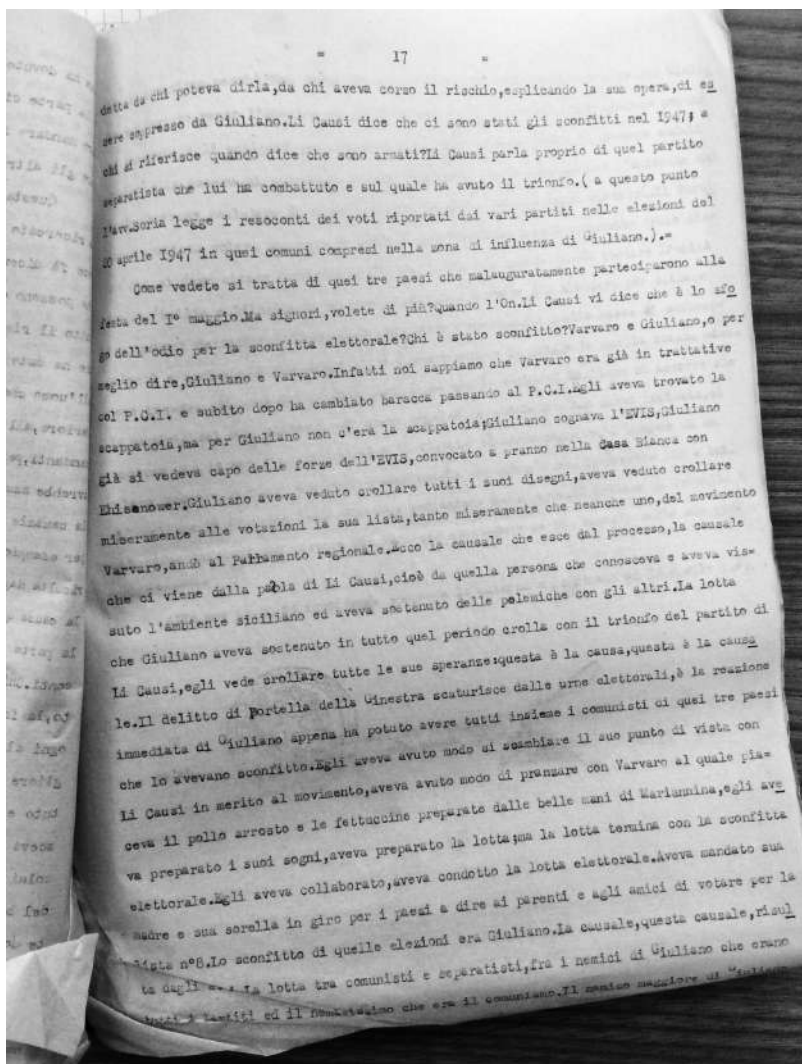 = 17 =
detta da chi poteva dirla,da chi aveva corso il rischio,esplicando la sua opera,di es
sere soppresso da Giuliano.Li Causi dice che ci sono stati gli sconfitti nel 1947; a
chi si riferisce quando dice che sono armati?Li Causi parla proprio di quel partito
separatista che lui ha combattuto e sul quale ha avuto il trionfo.( a questo punto
l'avv.Soria legge i resoconti dei voti riportati dai vari partiti nelle elezioni del
20 aprile I947 in quei comuni compresi nella zona di influenza di Giuliano.).=
Come vedete si tratta di quei tre paesi che malauguratamente parteciparono alla
festa del I° maggio.Ma signori,volete di più?Quando l'On.Li Causi vi dice che è lo sfo
go dell'odio per la sconfitta elettorale?Chi è stato sconfitto?Varvaro e Giuliano,o per
meglio dire,Giuliano e Varvaro.Infatti noi sappiamo che Varvaro era già in trattative
col P.C.I. e subito dopo ha cambiato baracca passando al P.C.I.Egli aveva trovato la
scappatoia,ma per Giuliano non c'era la scappatoia;Giuliano sognava l'EVIS,Giuliano
già si vedeva capo delle forze dell'EVIS,convocato a pranzo nella Casa Bianca con
Ehisenower.Giuliano aveva veduto crollare tutti i suoi disegni,aveva veduto crollare
miseramente alle votazioni la sua lista,tanto miseramente che neanche uno,del movimento
Varvaro,andò al Parlamento regionale.Ecco la causale che esce dal processo,la causale
che ci viene dalla paola di Li Causi,cioè da quella persona che conosceva e aveva vis=
suto l'ambiente siciliano ed aveva sostenuto delle polemiche con gli altri.La lotta
che Giuliano aveva sostenuto in tutto quel periodo crolla con il trionfo del partito di
Li Causi,egli vede crollare tutte le sue speranze:questa è la causa,questa è la causa
le.Il delitto di Portella della Ginestra scaturisce dalle urne elettorali,è la reazione
immediata di Giuliano appena ha potuto avere tutti insieme i comunisti di quei tre paesi
che lo avevano sconfitto.Egli aveva avuto modo di scambiare il suo punto di vista con
Li Causi in merito al movimento,aveva avuto modo di pranzare con Varvaro al quale pia=
ceva il pollo arrosto e le fettuccine preparate dalle belle mani di Mariannina,egli ave
va preparato i suoi sogni,aveva preparato la lotta;ma la lotta termina con la sconfitta
elettorale.Egli aveva collaborato,aveva condotto la lotta elettorale.Aveva mandato sua
madre e sua sorella in giro per i paesi a dire ai parenti e agli amici di votare per la
lista n°8.Lo sconfitto di quelle elezioni era Giuliano.La causale,questa causale,risul
ta dagli La lotta tra comunisti e separatisti,fra i nemici di Giuliano che erano
tutti i partiti ed il nemicissimo che era il comunismo.Il nemico maggiore di Giuliano